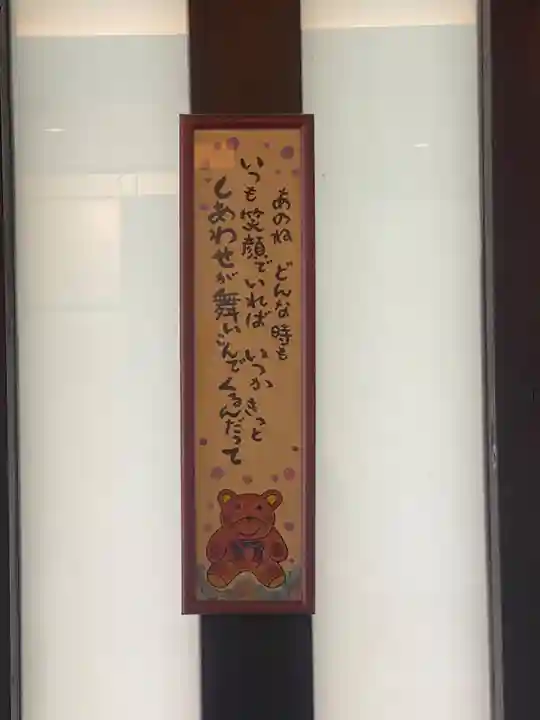 あのね どんな時も
いつも笑顔でいれば いつかきっと
しあわせが舞いこんでくるんだって